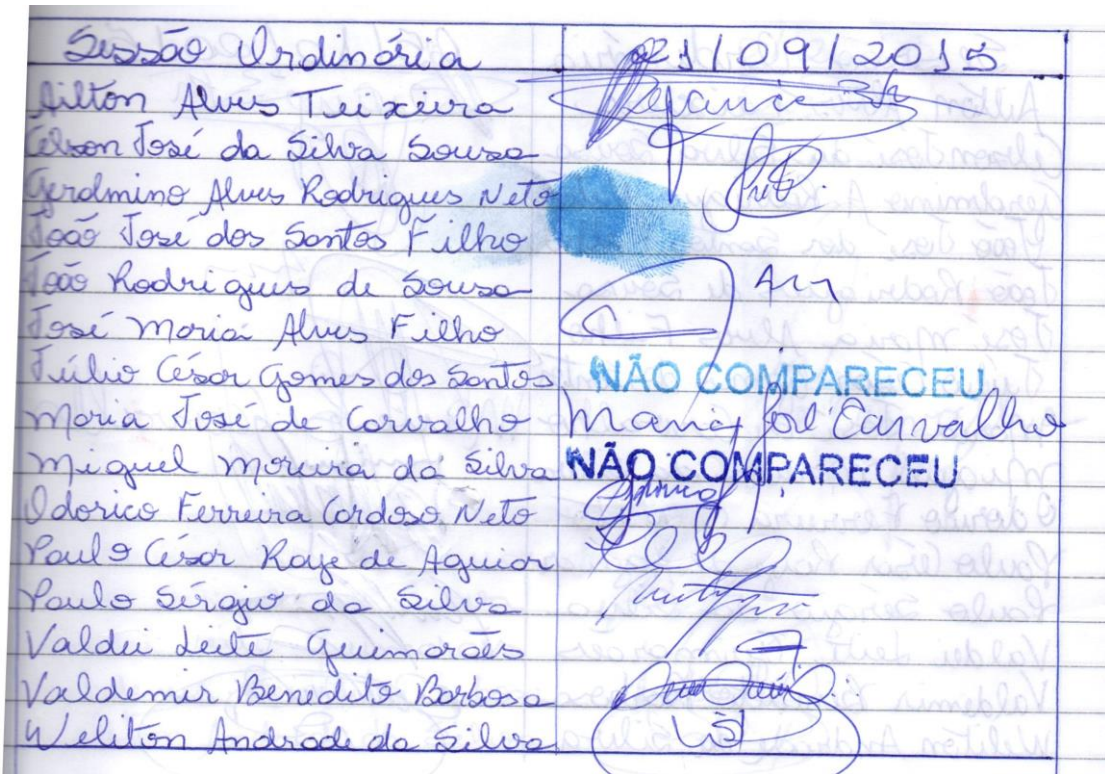 Sessão Ordinária 21/09/2015
Ailton Alves Teixeira
Celson José da Silva Sousa
Geralmino Alves Rodrigues Neto
João José dos Santos Filho
João Rodrigues de Sousa
José Maria Alves Filho
Júlio César Gomes dos Santos NÃO COMPARECEU
Maria José de Carvalho Maria José Carvalho
Miguel Moreira da Silva NÃO COMPARECEU
Odorico Ferreira Cardoso Neto
Paulo César Raye de Aguiar
Paulo Sérgio da Silva
Valdei Leite Guimarães
Valdemir Benedito Barbosa
Weliton Andrade da Silva